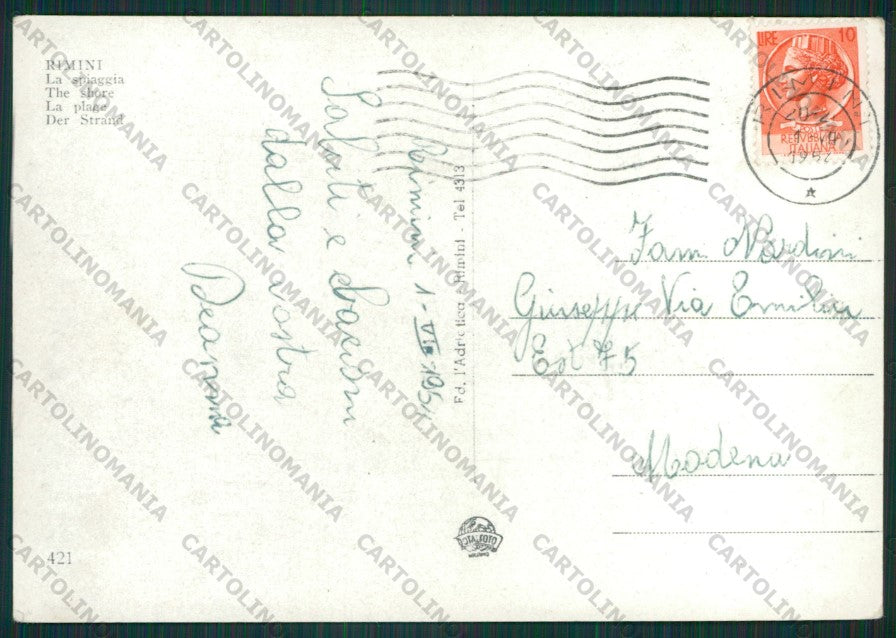 RIMINI
La spiaggia
The shore
La plage
Der Strand
LIRE 10
REPUBBLICA
ITALIANA
Rimini 1-VII-195
Saluti e bacioni
dalla vostra
Deanna
Ed. l'Adriatica - Rimini - Tel 4313
Fam Nardini
Giuseppe Via Emilia
Est 75
Modena
421
CARTOLINOMANIA